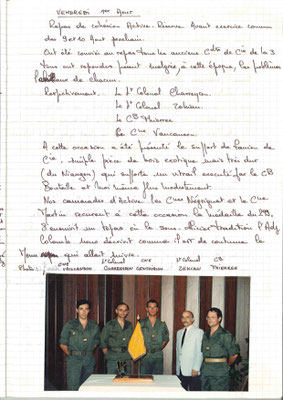 VENDREDI 1er Aout
Repas de cohésion Active-Réserve Avant exercice commun
des 9 et 10 Aout prochain.
Ont été convié au repas tous les anciens Cdts de Cie de la 3
Tous ont répondus présent malgrés, à cette époque, les problèmes
de chacun.
Respectivement. Le Lt Colonel Charreyron
Le Lt Colonel Zehian
Le CB Thierree
Le Cne Vancanson
A cette occasion a été présenté le support de fanion de
Cie, simple pièce de bois exotique mais très dur
(du Niangon) qui supporte un vitrail executé par le CB
Bouteille et moi même plus modestement.
Nos camarades d'Active les Cnes Négriguet et le Cne
Martin recurent à cette occasion la médaille du
S'ensuivit un repas où le sous-officier tradition l'Adj
Colomb nous décrivit comme il est de coutume le
Menu qui allait suivre.
Photo: Cne Lt Colonel Cne Lt Colonel CB
VANCANSON CHARREYRON ZEHIAN THIERREE